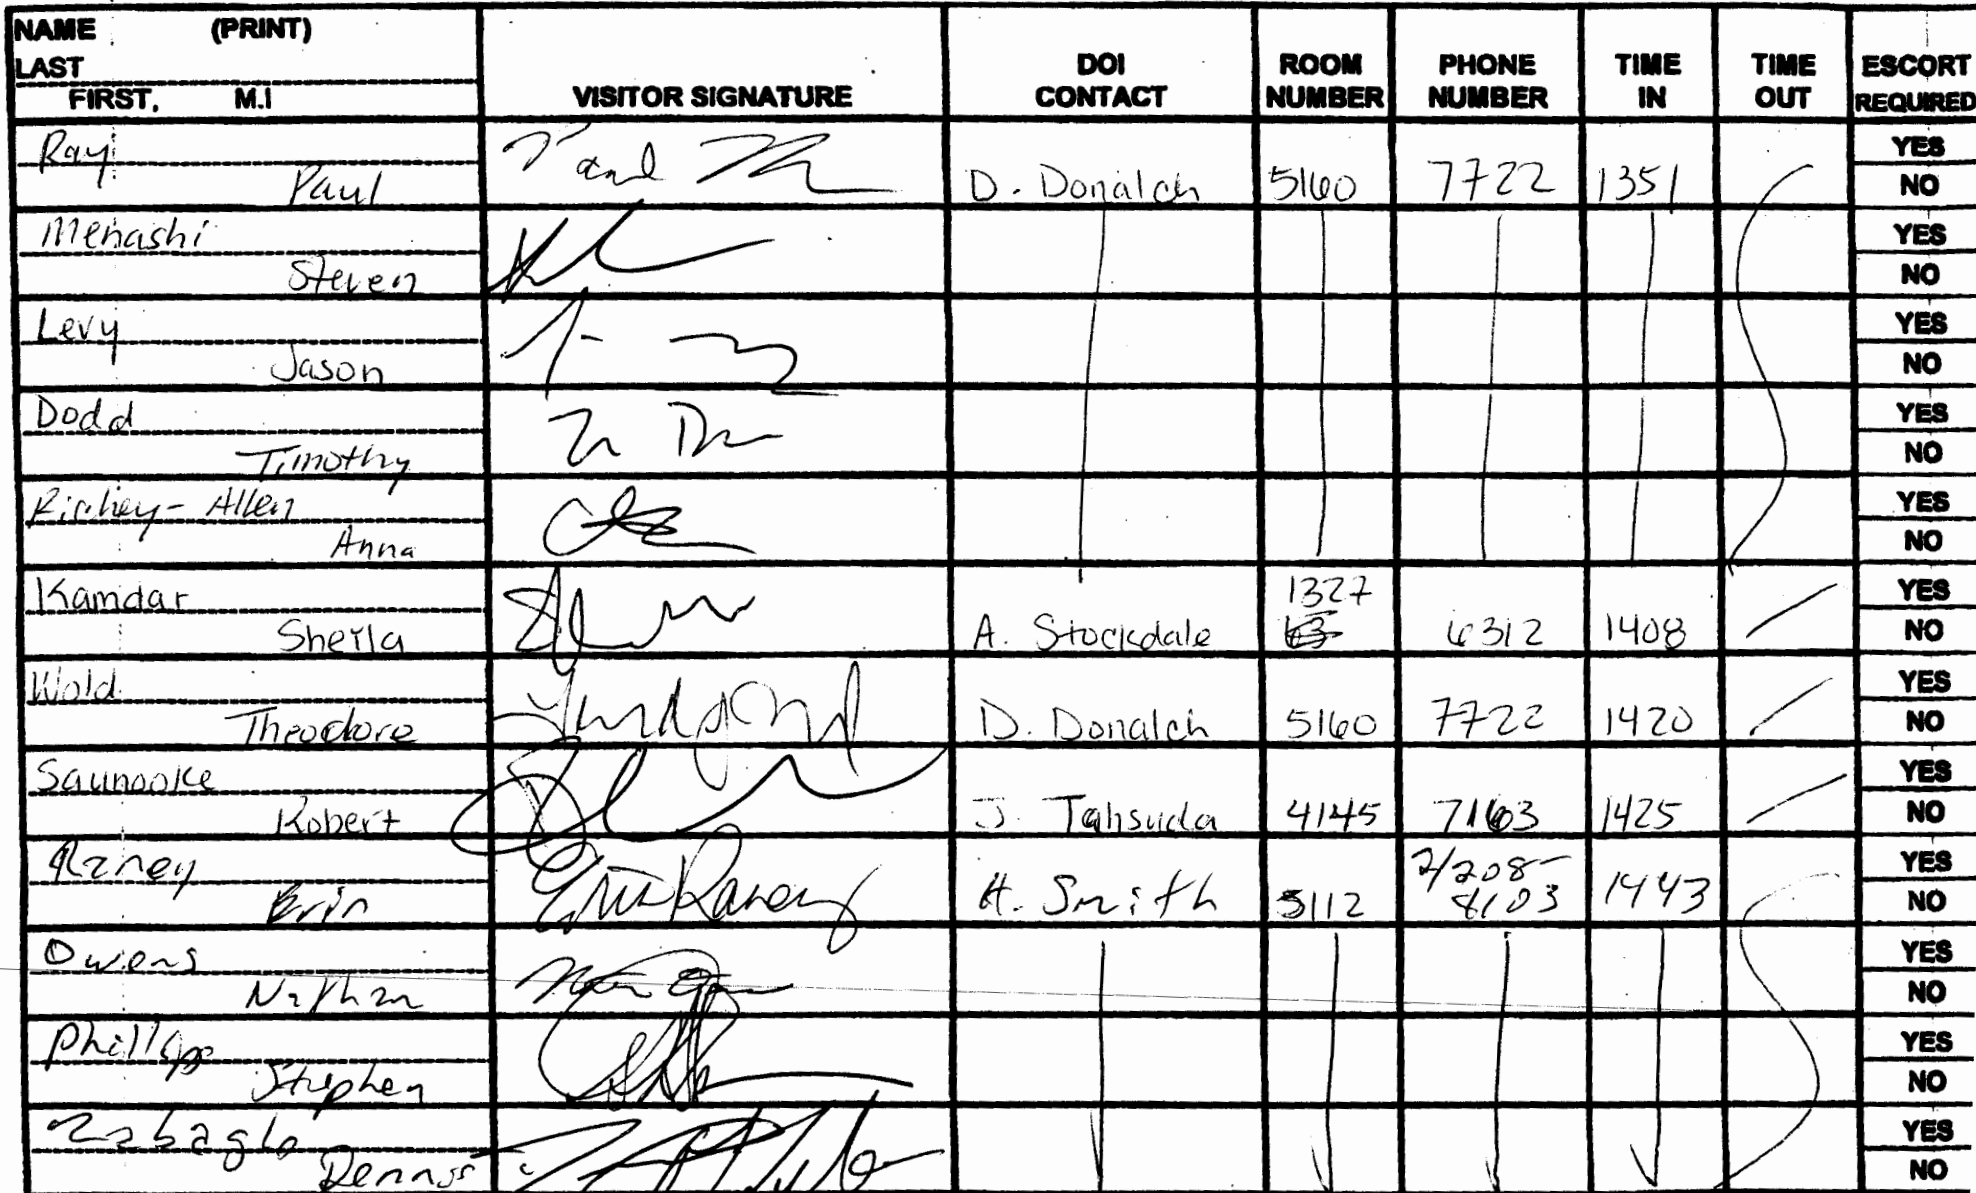 NAME (PRINT)
LAST
FIRST, M.I
VISITOR SIGNATURE
DOI CONTACT
ROOM NUMBER
PHONE NUMBER
TIME IN
TIME OUT
ESCORT REQUIRED
Ray
Paul D. Donalch 5160 7722 1351
YES
NO
Menashi
Steven
YES
NO
Levy
Jason
YES
NO
Dodd
Timothy
YES
NO
Richey-Allen
Anna
YES
NO
Kamdar
Sheila A. Stockdale 1327 6312 1408
YES
NO
Wold
Theodore D. Donalch 5160 7722 1420
YES
NO
Saunooke
Robert J. Tahsuda 4145 7163 1425
YES
NO
Raney
Erin Raney H. Smith 5112 1443
YES
NO
Owens
Nathan
YES
NO
Phillips
Stephen
YES
NO
Zabaglo
Dennis
YES
NO